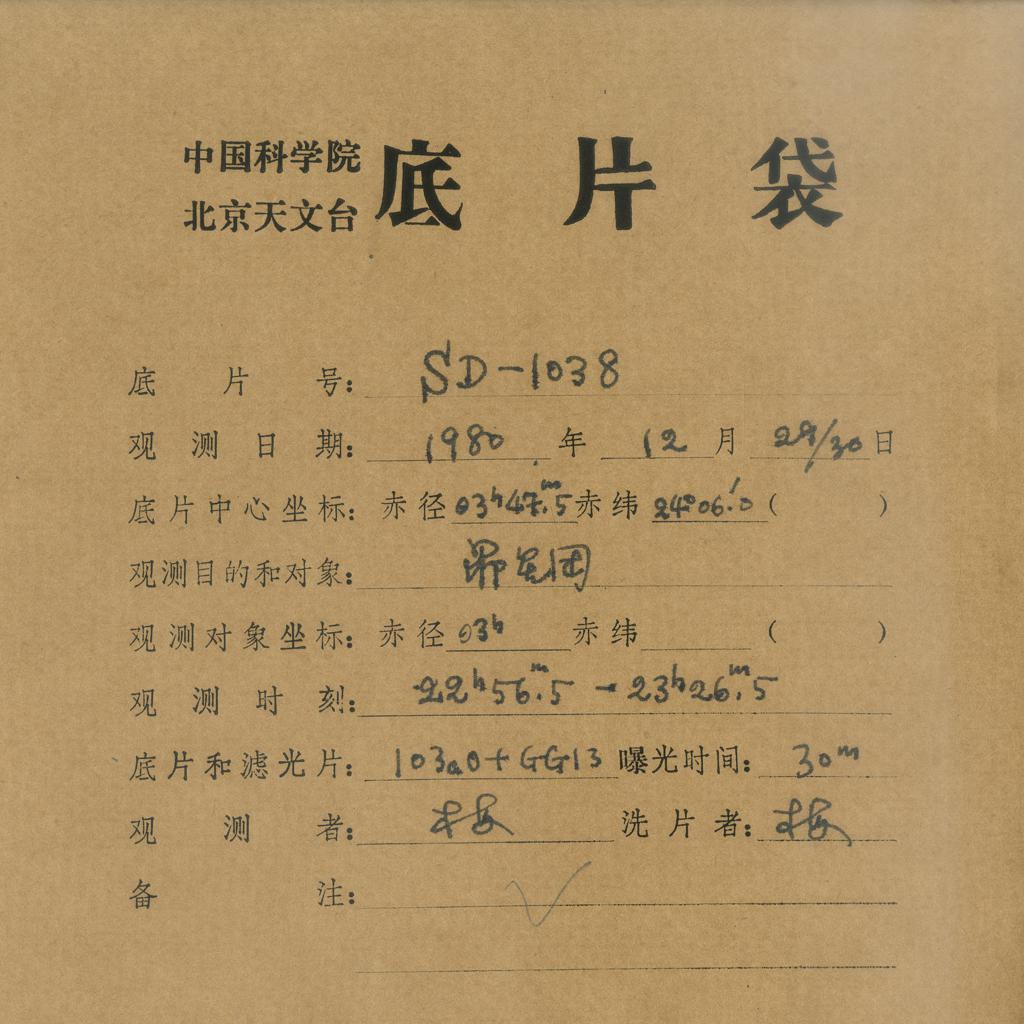 中国科学院
北京天文台
底片袋
底片号：SD-1038
观测日期：1980年12月29/30日
底片中心坐标：赤径03ʰ47ᵐ.5赤纬24°06′.0（ ）
观测目的和对象：昴星团
观测对象坐标：赤径03ʰ 赤纬（ ）
观测时刻：22ʰ56ᵐ.5-23ʰ26ᵐ.5
底片和滤光片：103aO+GG13 曝光时间：30ᵐ
观测者：梅 洗片者：梅
备注：√